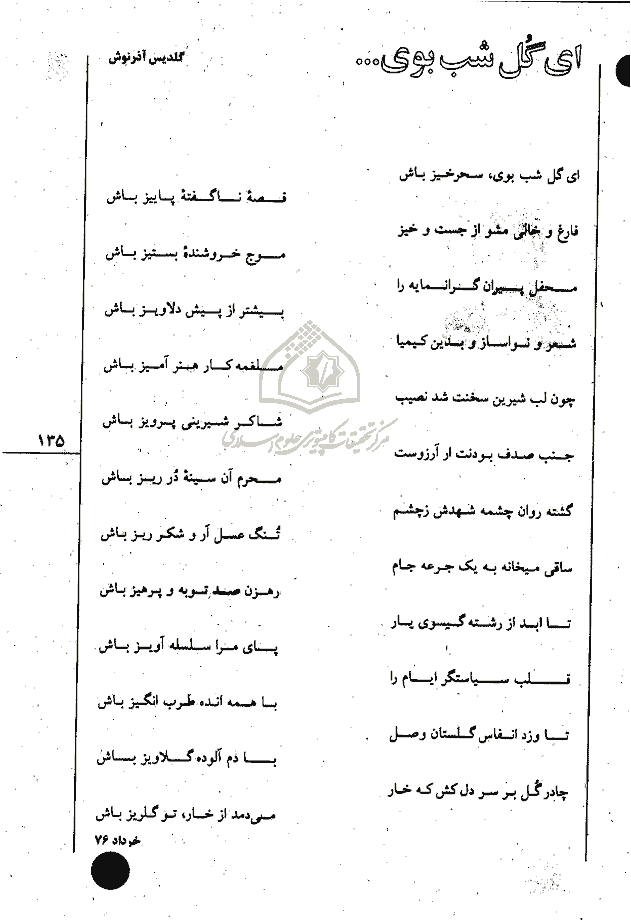 ای گُل شب بوی...
گلدیس آذرنوش
ای گل شب بوی، سحرخیز باش
قصهٔ ناگفتهٔ پاییز باش
فارغ و خالی مشو از جست و خیز
موج خروشندهٔ بستیز باش
محفل پیران گرانمایه را
بیشتر از پیش دلاویز باش
شعر و نواساز و بدین کیمیا
ملغمه کار هنر آمیز باش
چون لب شیرین سخنت شد نصیب
شاکر شیرینی پرویز باش
جنب صدف بودنت ار آرزوست
محرم آن سینهٔ دُر ریز باش
گشته روان چشمه شهدش زچشم
تُنگ عسل آر و شکر ریز باش
ساقی میخانه به یک جرعه جام
رهزن صد توبه و پرهیز باش
تا ابد از رشته گیسوی یار
پای مرا سلسله آویز باش
قلب سیاستگر ایام را
با همه انده طرب انگیز باش
تا وزد انفاس گلستان وصل
با دم آلوده گلاویز باش
چادر گُل بر سر دل کش که خار
می‌دمد از خار، تو گلریز باش
خرداد ۷۶
۱۳۵
مرکز تحقیقات کامپیوتری علوم اسلامی